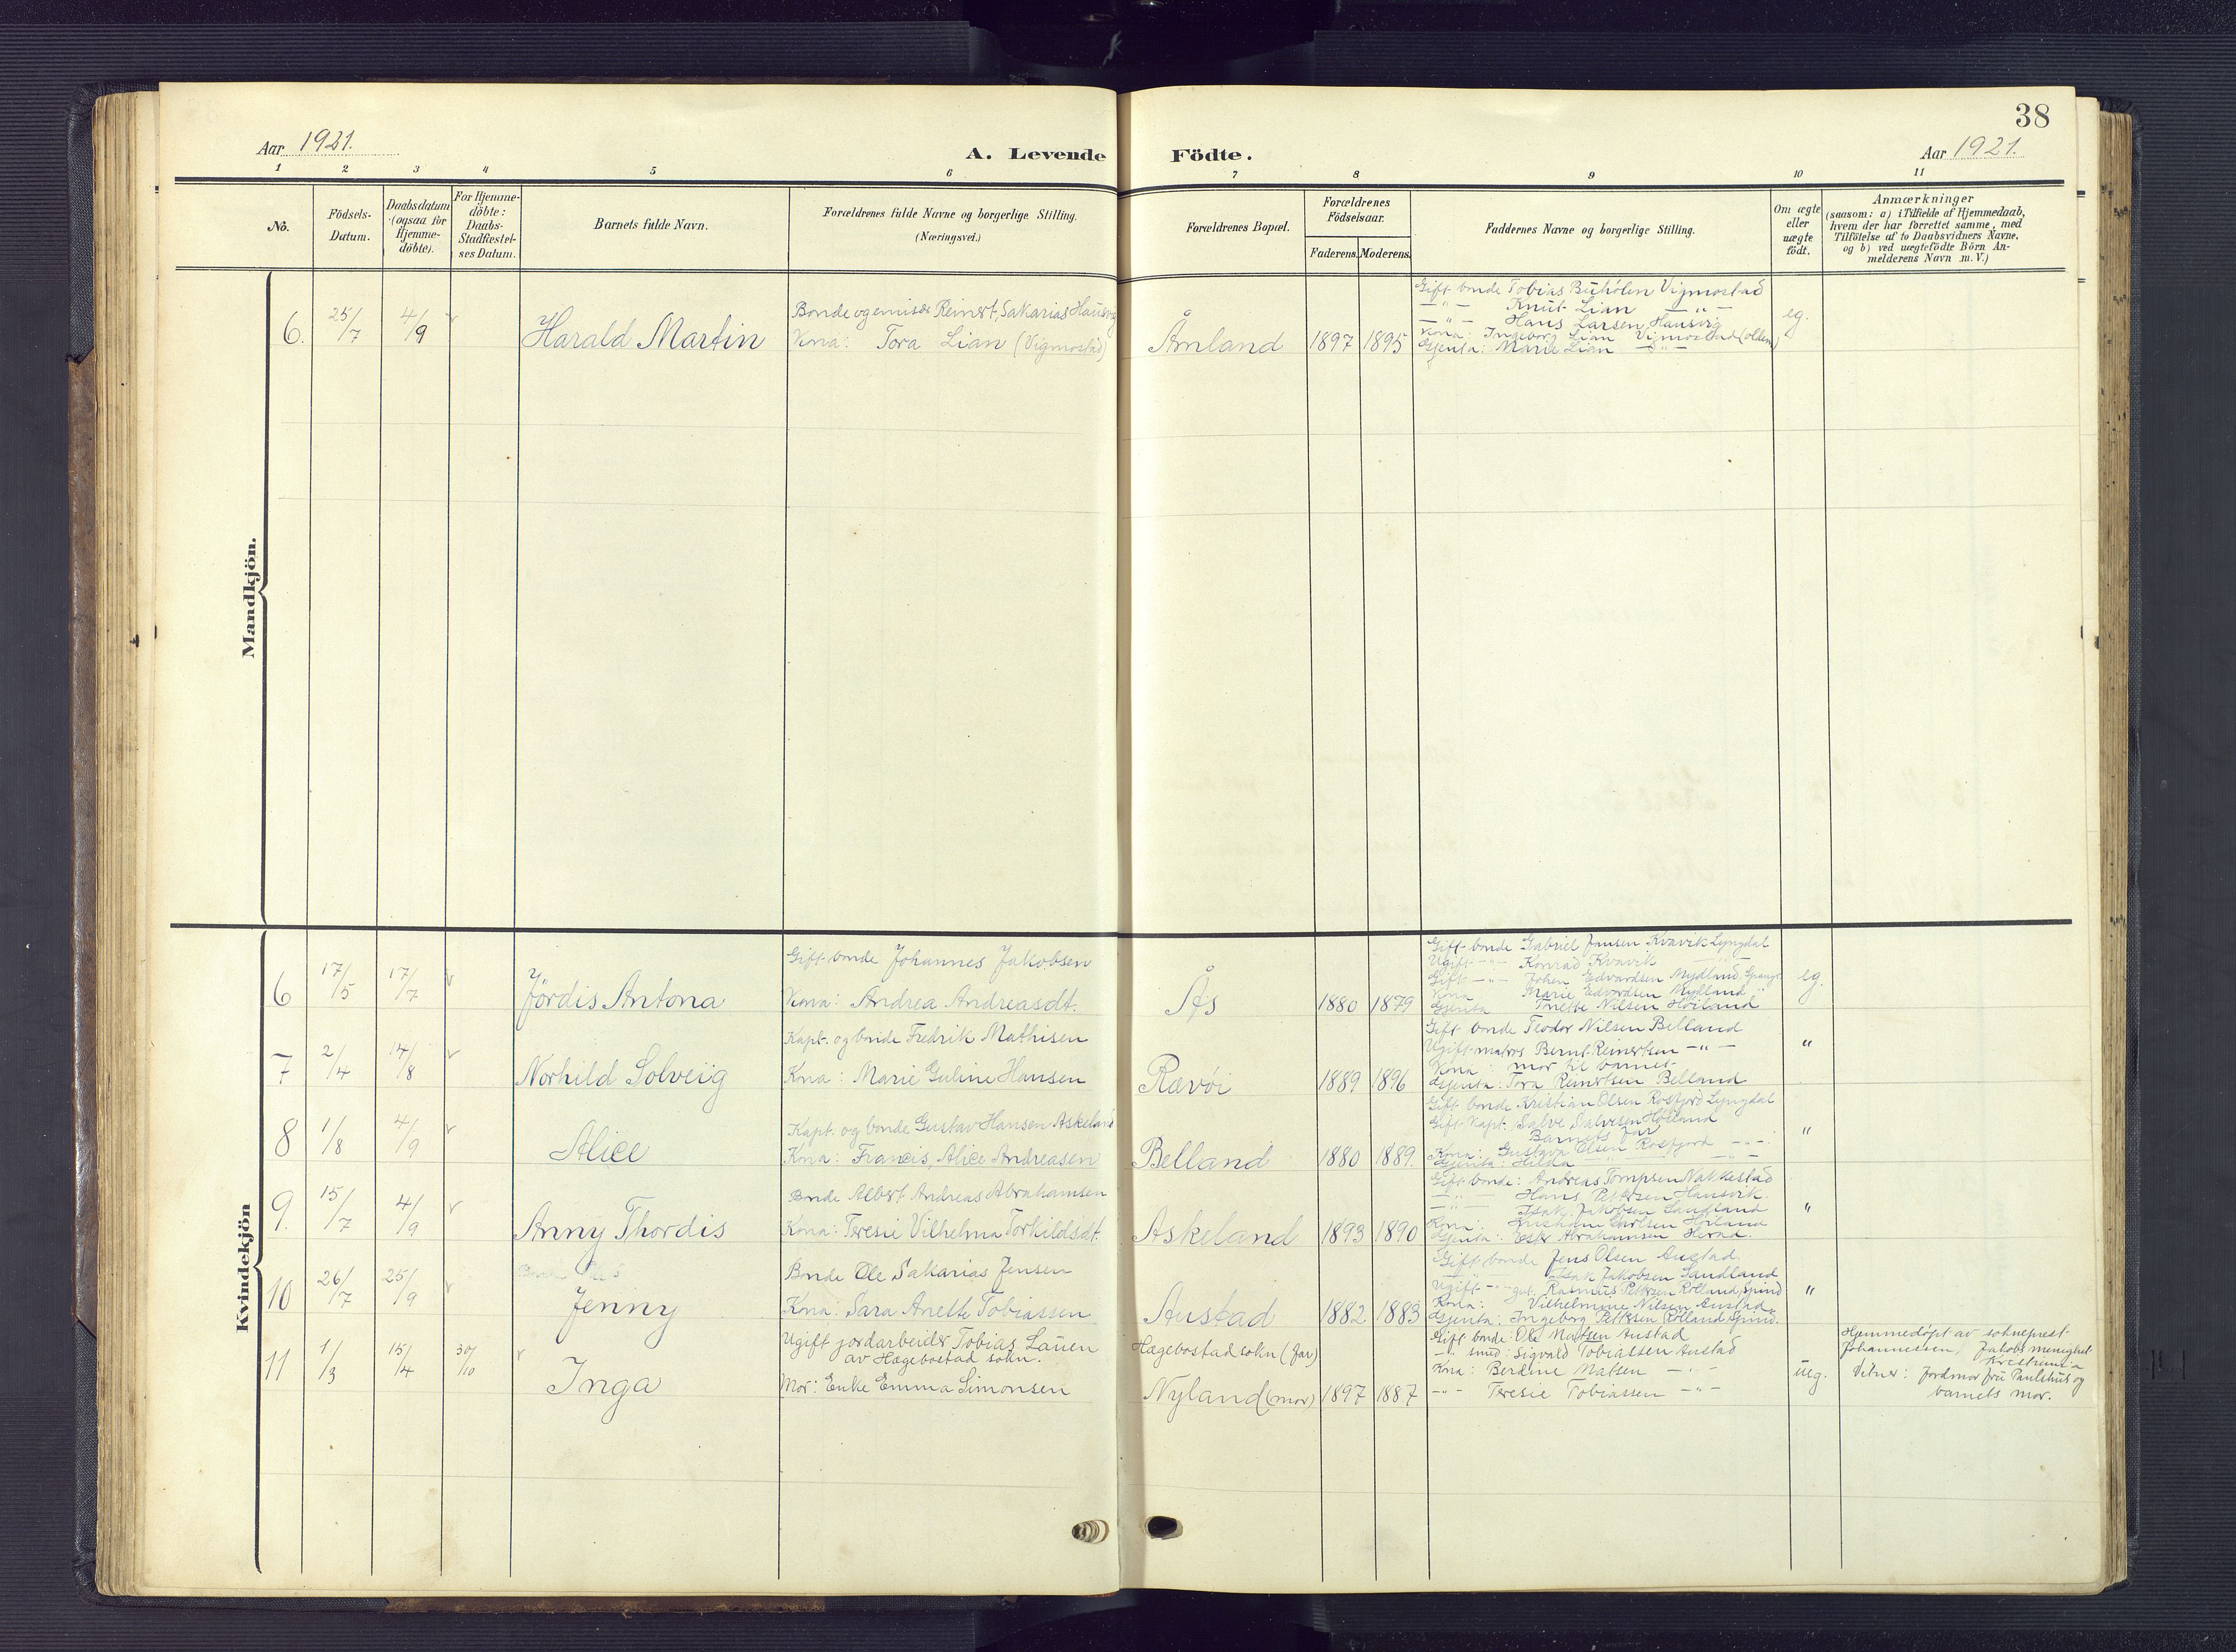 38
Aar 1921.
A. Levende Födte.
Aar 1921.
1 2 3 4 5 6 7 8 9 10 11
No.
Födsels-Datum.
Daabsdatum (ogsaa for Hjemme-döbte).
For Hjemme-döbte: Daabs-Stadfæstel-ses Datum.
Barnets fulde Navn.
Forældrenes fulde Navne og borgerlige Stilling.
(Næringsvei.)
Forældrenes Bopæl.
Forældrenes Födselsaar.
Faderens. Moderens.
Faddernes Navne og borgerlige Stilling.
Om ægte eller uægte födt.
Anmærkninger
(saasom: a) i Tilfælde af Hjemmedaab,
hvem der har forrettet samme, med
Tilföielse af to Daabsvidners Navne,
og b) ved uægtefödte Börn An-
melderens Navn m. V.)
Mandkjön.
6. 25/7 4/9 Harald Martin
Bonde og emissær Reinert Sakarias Hausvig
Kona: Tora Lian (Vigmostad)
Åmland 1897 1895
Gift bonde Tobias Buhölen Vigmostad
—"— Knut Lian —"—
—"— Hans Larsen Hausvig
Kona: Ingeborg Lian Vigmostad
Gjenta: Marie Lian —"—
eg.
Kvindekjön
6 17/5 17/7 Jördis Antona
Gift bonde Johannes Jakobsen
Kona: Andrea Andreasdt.
Ås 1880 1879
Gift bonde Gabriel Jansen Kvavik Lyngdal
Ugift —"— Konrad Kvavik
Gift —"— Johan Edvardsen Nydland
Kona Marie Edvardsen Nydland
Gjenta Tonette Nilsen Höiland
eg.
7 2/4 14/8 Norhild Solveig
Kapt. og bonde Fredrik Mathisen
Kona: Marie Guline Hansen
Rævöi 1889 1896
Gift bonde Teodor Nilsen Belland
Ugift matros Bernt Reinertsen —"—
Kona: mor til barnet
Gjenta: Tora Reinertsen Belland
"
8 1/8 4/9 Alice
Kapt. og bonde Gustav Hansen Askeland
Kona: Francis Alice Andreasen
Belland 1880 1889.
Gift bonde Kristian Olsen Rosfjord Lyngdal
Gift Kapt. Salve Salvesen Höiland
Barnets far
Kona: Gustava Olsen Rosfjord —"—
Gjenta: Hilda —"—
"
9. 15/7 4/9 Anny Thordis
Bonde Albert Andreas Abrahamsen
Kona: Teresie Vilhelma Torkildsdt.
Askeland 1893 1890
Gift bonde: Andreas Tompsen Nakkestad
—"— Hans Pettersen Hausvik
—"— Isak Jakobsen Sandland
Kona: Carlsen Höiland
Gjenta: Ester Abrahamsen Herad.
"
10 26/7 25/9 Jenny
Bonde Ole Sakarias Jensen
Kona: Sara Anette Tobiassen
Austad 1882 1883
Gift bonde Jens Olsen Austad
Isak Jakobsen Sandland
Ugift —"— gut. Rasmus Pettersen Rölland, Spind
Kona: Vilhelmine Nilsen Austad.
Gjenta: Ingeborg Pettersen Rölland, Spind.
"
11 1/3 15/4 30/10 Inga
Ugift jordarbeider Tobias Lauen
av Hægebostad sokn.
Mor: Enke Emma Simonsen
Hægebostad sokn (far)
Nyland (mor) 1897 1887
Gift bonde: Ole Matsen Austad
—"— smed: Sigvald Tobiassen Austad
Kona: Berdine Matsen —"—
—"— Teresie Tobiassen —"—
ueg.
Hjemmedöpt av sokneprest
Johannessen, Jakobs menighet
Kristiania
Vitner: Jordmor fru Paulshus og
barnets mor.